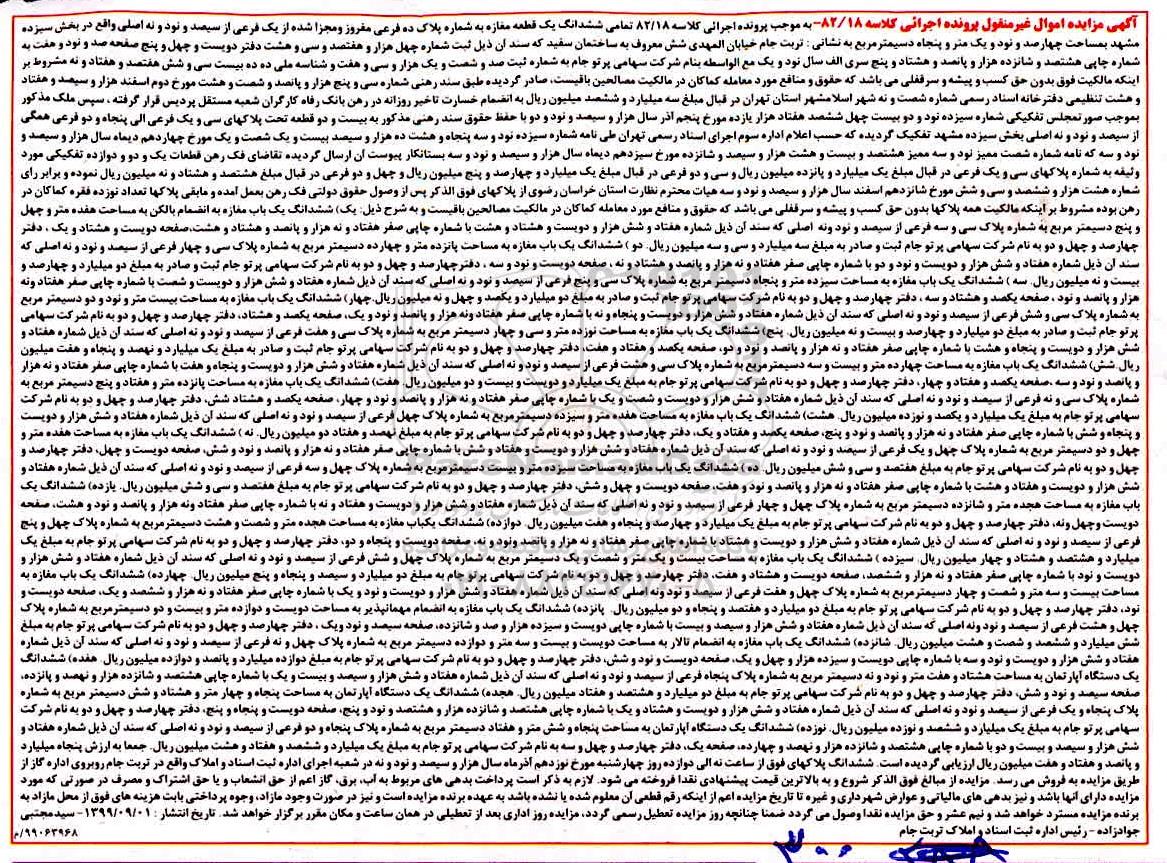 آگهی مزایده اموال غیرمنقول پرونده اجرائی کلاسه ۸۲/۱۸- به موجب پرونده اجرائی کلاسه ۸۲/۱۸ تمامی ششدانگ یک قطعه مغازه به شماره پلاک ده فرعی مفروز ومجزا شده از یک فرعی از سیصد و نود و نه اصلی واقع در بخش سیزده
مشهد بمساحت چهارصد و نود و یک متر و پنجاه دسیمترمربع به نشانی : تربت جام خیابان المهدی شش معروف به ساختمان سفید که سند آن ذیل ثبت شماره چهل هزار و هفتصد و سی و هشت دفتر دویست و چهل و پنج صفحه صد و نود و هفت به
شماره چاپی هشتصد و شانزده هزار و پانصد و هشتاد و پنج سری الف سال نود و یک مع الواسطه بنام شرکت سهامی پرتو جام به شماره ثبت صد و شصت و یک هزار و سی و هفت و شناسه ملی ده ده بیست سی و شش هفتصد و هفتاد و نه مشروط بر
اینکه مالکیت فوق بدون حق کسب و پیشه و سرقفلی می باشد که حقوق و منافع مورد معامله کماکان در مالکیت مصالحین باقیست، صادر گردیده طبق سند رهنی شماره سی و پنج هزار و پانصد و شصت و هشت مورخ دوم اسفند هزار و سیصد و هفتاد
و هشت تنظیمی دفترخانه اسناد رسمی شماره شصت و نه شهر اسلامشهر استان تهران در قبال مبلغ سه میلیارد و ششصد میلیون ریال به انضمام خسارت تاخیر روزانه در رهن بانک رفاه کارگران شعبه مستقل پردیس قرار گرفته ، سپس ملک مذکور
بموجب صورتمجلس تفکیکی شماره سیزده نود و دو بیست چهل ششصد هفتاد هزار یازده مورخ پنجم آذر سال هزار و سیصد و نود و دو با حفظ حقوق سند رهنی مذکور به بیست و دو قطعه تحت پلاکهای سی و یک فرعی الی پنجاه و دو فرعی همگی
از سیصد و نود و نه اصلی بخش سیزده مشهد تفکیک گردیده که حسب اعلام اداره سوم اجرای اسناد رسمی تهران طی نامه شماره سیزده نود و سه پنجاه و هشت ده هزار و سیصد بیست و یک شصت و یک مورخ چهاردهم دیماه سال هزار و سیصد و
نود و سه که نامه شماره شصت ممیز نود و سه ممیز هشتصد و بیست و هشت هزار و سیصد و شانزده مورخ سیزدهم دیماه سال هزار و سیصد و نود و سه بستانکار پیوست آن ارسال گردیده تقاضای فک رهن قطعات یک و دو و دوازده تفکیکی مورد
وثیقه به شماره پلاکهای سی و یک فرعی در قبال مبلغ یک میلیارد و پانزده میلیون ریال و سی و دو فرعی در قبال مبلغ یک میلیارد و چهارصد و پنج میلیون ریال و چهل و دو فرعی در قبال مبلغ هشتصد و هشتاد و نه میلیون ریال نموده و برابر رای
شماره هشت هزار و ششصد و سی و شش مورخ شانزدهم اسفند سال هزار و سیصد و نود و سه هیات محترم نظارت استان خراسان رضوی از پلاکهای فوق الذکر پس از وصول حقوق دولتی فک رهن بعمل آمده و مابقی پلاکها تعداد نوزده فقره کماکان در
رهن بوده مشروط بر اینکه مالکیت همه پلاکها بدون حق کسب و پیشه و سرقفلی می باشد که حقوق و منافع مورد معامله کماکان در مالکیت مصالحین باقیست و به شرح ذیل: یک) ششدانگ یک باب مغازه به انضمام بالکن به مساحت هفده متر و چهل
و پنج دسیمتر مربع به شماره پلاک سی و سه فرعی از سیصد و نود ونه اصلی که سند آن ذیل شماره هفتاد و شش هزار و دویست و هشتاد و هشت با شماره چاپی صفر هفتاد و نه هزار و پانصد و هشتاد و هشت،صفحه دویست و هشتاد و یک ، دفتر
چهارصد و چهل و دو به نام شرکت سهامی پرتو جام ثبت و صادر به مبلغ سه میلیارد و سی و سه میلیون ریال. دو ) ششدانگ یک باب مغازه به مساحت پانزده متر و چهارده دسیمتر مربع به شماره پلاک سی و چهار فرعی از سیصد و نود و نه اصلی که
سند آن ذیل شماره هفتاد و شش هزار و دویست و نود و دو با شماره چاپی صفر هفتاد و نه هزار و پانصد و هشتاد و نه ، صفحه دویست و نود و سه ، دفترچهارصد و چهل و دو به نام شرکت سهامی پرتو جام ثبت و صادر به مبلغ دو میلیارد و چهارصد و
بیست و نه میلیون ریال. سه ) ششدانگ یک باب مغازه به مساحت سیزده متر و پنجاه دسیمترمربع به شماره پلاک سی و پنج فرعی از سیصد و نود و نه اصلی که سند آن ذیل شماره هفتاد و شش هزار و دویست و شصت با شماره چاپی صفر هفتاد ونه
هزار و پانصد و نود ، صفحه یکصد و هشتاد و سه ، دفتر چهارصد و چهل و دو به نام شرکت سهامی پرتو جام ثبت و صادر به مبلغ دو میلیارد و یکصد و چهل و نه میلیون ریال.چهار) ششدانگ یک باب مغازه به مساحت بیست متر و نود و دو دسیمتر مربع
به شماره پلاک سی و شش فرعی از سیصد و نود و نه اصلی که سند آن ذیل شماره هفتاد و شش هزار و دویست و پنجاه و نه با شماره چاپی صفر هفتاد ونه هزار و پانصد و نود و یک، صفحه یکصد و هشتاد، دفتر چهارصد و چهل و دو به نام شرکت سهامی
پرتو جام ثبت و صادر به مبلغ دو میلیارد و چهارصد و بیست و نه میلیون ریال. پنج) ششدانگ یک باب مغازه به مساحت نوزده متر و سی و چهار دسیمتر مربع به شماره پلاک سی و هفت فرعی از سیصد و نود و نه اصلی که سند آن ذیل شماره هفتاد و
شش هزار و دویست و پنجاه و هشت با شماره چاپی صفر هفتاد و نه هزار و پانصد و نود و دو، صفحه یکصد و هفتاد و هفت، دفتر چهارصد و چهل و دو به نام شرکت سهامی پرتو جام ثبت و صادر به مبلغ یک میلیارد و نهصد و پنجاه و هفت میلیون
ریال.شش) ششدانگ یک باب مغازه به مساحت چهارده متر و بیست و سه دسیمترمربع به شماره پلاک سی و هشت فرعی از سیصد و نود و نه اصلی که سند آن ذیل شماره هفتاد و شش هزار و دویست و پنجاه و هفت با شماره چاپی صفر هفتاد و نه هزار
و پانصد و نود و سه ،صفحه یکصد و هفتاد و چهار، دفتر چهارصد و چهل و دو به نام شرکت سهامی پرتو جام به مبلغ یک میلیارد و دویست و بیست و دو میلیون ریال. هفت) ششدانگ یک باب مغازه به مساحت پانزده متر و هفتاد و پنج دسیمتر مربع به
شماره پلاک سی و نه فرعی از سیصد و نود و نه اصلی که سند آن ذیل شماره هفتاد و شش هزار و دویست و شصت و یک با شماره چاپی صفر هفتاد و نه هزار و پانصد و نود و چهار، صفحه یکصد و هشتاد شش، دفتر چهارصد و چهل و دو به نام شرکت
سهامی پرتو جام به مبلغ یک میلیارد و یکصد و نوزده میلیون ریال. هشت) ششدانگ یک باب مغازه به مساحت هفده متر و سیزده دسیمترمربع به شماره پلاک چهل فرعی از سیصد و نود و نه اصلی که سند آن ذیل شماره هفتاد و شش هزار و دویست
و پنجاه و شش با شماره چاپی صفر هفتاد و نه هزار و پانصد و نود و پنج، صفحه یکصد و هفتاد و یک، دفتر چهارصد و چهل و دو به نام شرکت سهامی پرتو جام به مبلغ نهصد و هفتاد دو میلیون ریال. نه ) ششدانگ یک باب مغازه به مساحت هفده متر و
چهل و دو دسیمتر مربع به شماره پلاک چهل و یک فرعی از سیصد و نود و نه اصلی که سند آن ذیل شماره هفتاد و شش هزار و دویست و هفتاد و شش با شماره چاپی صفر هفتاد و نه هزار و پانصد و نود و شش، صفحه دویست و چهل، دفتر چهارصد و
چهل و دو به نام شرکت سهامی پرتو جام به مبلغ هفتصد و سی و شش میلیون ریال. ده) ششدانگ یک باب مغازه به مساحت سیزده متر و بیست دسیمترمربع به شماره پلاک چهل و سه فرعی از سیصد و نود و نه اصلی که سند آن ذیل شماره هفتاد و
شش هزار و دویست و هفتاد و هشت با شماره چاپی صفر هفتاد و نه هزار و پانصد و نود و هفت، صفحه دویست و چهل و شش، دفتر چهارصد و چهل و دو به نام شرکت سهامی پرتو جام به مبلغ هفتصد و سی و شش میلیون ریال. یازده) ششدانگ یک
باب مغازه به مساحت هجده متر و شانزده دسیمتر مربع به شماره پلاک چهل و چهار فرعی از سیصد و نود و نه اصلی که سند آن ذیل شماره هفتاد و شش هزار و دویست و هفتاد و نه با شماره چاپی صفر هفتاد ونه هزار و پانصد و نود و هشت، صفحه
دویست وچهل ونه، دفتر چهارصد و چهل و دو به نام شرکت سهامی پرتو جام به مبلغ یک میلیارد و چهارصد و پنجاه و هفت میلیون ریال. دوازده) ششدانگ یکباب مغازه به مساحت هجده متر و شصت و هشت دسیمترمربع به شماره پلاک چهل و پنج
فرعی از سیصد و نود و نه اصلی که سند آن ذیل شماره هفتاد و شش هزار و دویست و هشتاد با شماره چاپی صفر هفتاد و نه هزار و پانصد ونود و نه، صفحه دویست و پنجاه و دو، دفتر چهارصد و چهل و دو به نام شرکت سهامی پرتو جام به مبلغ یک
میلیارد و هشتصد و هشتاد و چهار میلیون ریال. سیزده ) ششدانگ یک باب مغازه به مساحت بیست و یک متر و سی و یک دسیمتر مربع به شماره پلاک چهل و شش فرعی از سیصد و نود و نه اصلی که سند آن ذیل شماره هفتاد و شش هزار و
دویست و نود با شماره چاپی صفر هفتاد و نه هزار و ششصد، صفحه دویست و هشتاد و هفت، دفتر چهارصد و چهل و دو به نام شرکت سهامی پرتو جام به مبلغ دو میلیارد و سیصد و پنجاه و پنج میلیون ریال. چهارده) ششدانگ یک باب مغازه به
مساحت بیست و سه متر و شصت و چهار دسیمترمربع به شماره پلاک چهل و هفت فرعی از سیصد و نود ونه اصلی که سند آن ذیل شماره هفتاد و شش هزار و دویست و نود و یک با شماره چاپی صفر هفتاد و نه هزار و ششصد و یک، صفحه دویست و
نود، دفتر چهارصد و چهل و دو به نام شرکت سهامی پرتو جام به مبلغ دو میلیارد و هفتصد و پنجاه و دو میلیون ریال. پانزده) ششدانگ یک باب مغازه به انضمام مهمانپذیر به مساحت دویست و دوازده متر و بیست و دو دسیمترمربع به شماره پلاک
چهل و هشت فرعی از سیصد و نود ونه اصلی که سند آن ذیل شماره هفتاد و شش هزار و سیصد و بیست با شماره چاپی دویست و سیزده هزار و صد و شانزده، صفحه سیصد و نود ویک ، دفتر چهارصد و چهل و دو به نام شرکت سهامی پرتو جام به مبلغ
شش میلیارد و ششصد و شصت و هشت میلیون ریال. شانزده) ششدانگ یک باب مغازه به انضمام تالار به مساحت دویست و بیست و سه متر و دوازده دسیمتر مربع به شماره پلاک چهل و نه فرعی از سیصد و نود و نه اصلی که سند آن ذیل شماره
هفتاد و شش هزار و دویست و نود و سه با شماره چاپی دویست و سیزده هزار و چهل و یک، صفحه دویست و نود و شش، دفتر چهارصد و چهل و دو به نام شرکت سهامی پرتو جام به مبلغ دوازده میلیارد و پانصد و دوازده میلیون ریال. هفده) ششدانگ
یک دستگاه آپارتمان به مساحت هشتاد و هفت متر و نود و نه دسیمتر مربع به شماره پلاک پنجاه فرعی از سیصد و نود و نه اصلی که سند آن ذیل شماره هفتاد و شش هزار و سیصد و بیست و یک با شماره چاپی هشتصد و شانزده هزار و نهصد و پانزده،
صفحه سیصد و نود و شش، دفتر چهارصد و چهل و دو به نام شرکت سهامی پرتو جام به مبلغ دو میلیارد و هشتصد و هفتاد میلیون ریال. هجده) ششدانگ یک دستگاه آپارتمان به مساحت پنجاه و چهار متر و هشتاد و شش دسیمتر مربع به شماره
پلاک پنجاه و یک فرعی از سیصد و نود و نه اصلی که سند آن ذیل شماره هفتاد و شش هزار و دویست و هشتاد و یک با شماره چاپی هشتصد و شانزده هزار و هشتصد و نود و پنج، صفحه دویست و پنجاه و پنج، دفتر چهارصد و چهل و دو به نام شرکت
سهامی پرتو جام به مبلغ یک میلیارد و ششصد و نوزده میلیون ریال. نوزده) ششدانگ یک دستگاه آپارتمان به مساحت پنجاه و شش متر و هفتاد دسیمتر مربع به شماره پلاک پنجاه و دو فرعی از سیصد و نود و نه اصلی که سند آن ذیل شماره هفتاد و
شش هزار و سیصد و بیست و دو با شماره چاپی هشتصد و شانزده هزار و نهصد و چهارده، صفحه یک، دفتر چهارصد و چهل و سه به نام شرکت سهامی پرتو جام به مبلغ یک میلیارد و ششصد و هفتاد و هشت میلیون ریال. جمعا به ارزش پنجاه میلیارد
و پانصد و هفتاد و هفت میلیون ریال ارزیابی گردیده است. ششدانگ پلاکهای فوق از ساعت نه الی دوازده روز چهارشنبه مورخ نوزدهم آذرماه سال هزار و سیصد و نود و نه در شعبه اجرای اداره ثبت اسناد و املاک واقع در تربت جام روبروی اداره گاز از
طریق مزایده به فروش می رسد. مزایده از مبالغ فوق الذکر شروع و به بالاترین قیمت پیشنهادی نقدا فروخته می شود. لازم به ذکر است پرداخت بدهی های مربوط به آب، برق، گاز اعم از حق انشعاب و یا حق اشتراک و مصرف در صورتی که مورد
مزایده دارای آنها باشد و نیز بدهی های مالیاتی و عوارض شهرداری و غیره تا تاریخ مزایده اعم از اینکه رقم قطعی آن معلوم شده یا نشده باشد به عهده برنده مزایده است و نیز در صورت وجود مازاد، وجوه پرداختی بابت هزینه های فوق از محل مازاد به
برنده مزایده مسترد خواهد شد و نیم عشر و حق مزایده نقدا وصول می گردد ضمنا چنانچه روز مزایده تعطیل رسمی گردد، مزایده روز اداری بعد از تعطیلی در همان ساعت و مکان مقرر برگزار خواهد شد. تاریخ انتشار : ۱۳۹۹/۰۹/۰۱- سیدمجتبی
جوادزاده - رئیس اداره ثبت اسناد و املاک تربت جام
۹۹۰۶۳۹۶۸/م